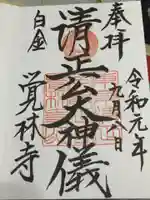 奉拝
令和元年
九月六日
清正公大神儀
白金
覚林寺